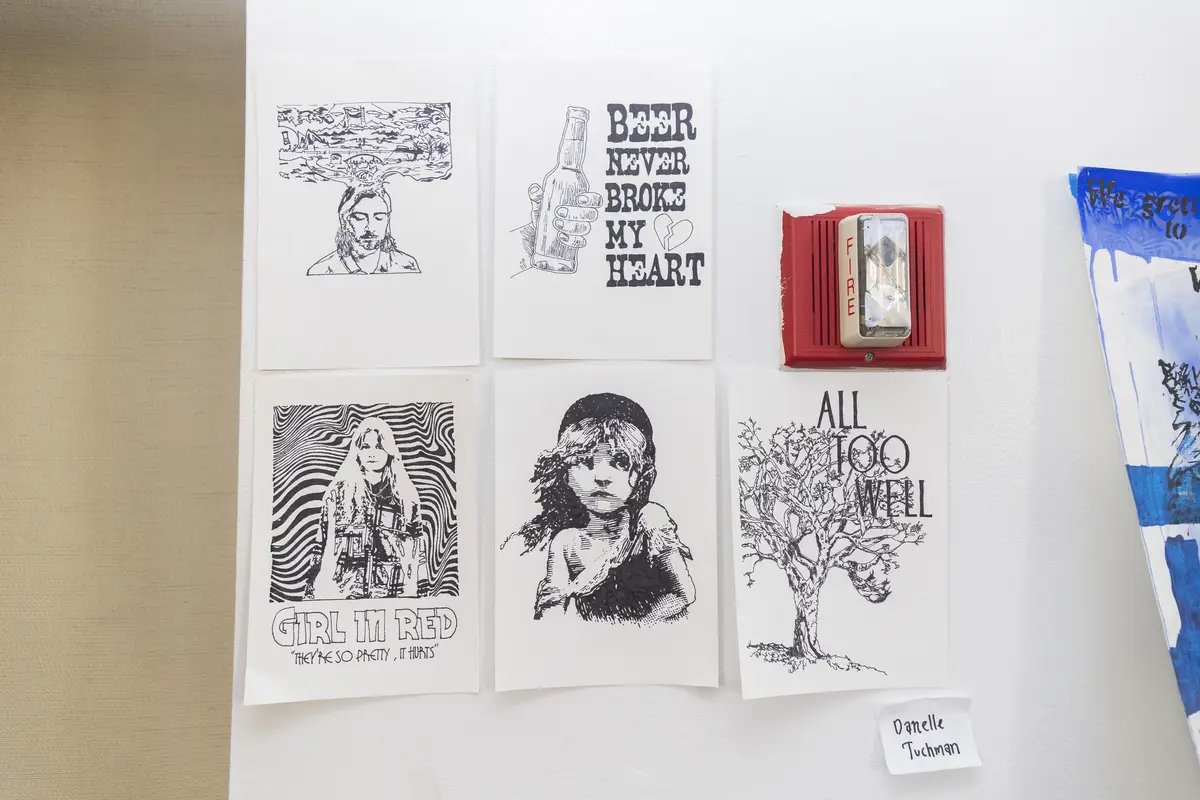 BEER
NEVER
BROKE
MY
HEART
FIRE
GIRL IN RED
"THEY'RE SO PRETTY, IT HURTS"
ALL
TOO
WELL
Danelle
Tuchman
We
to